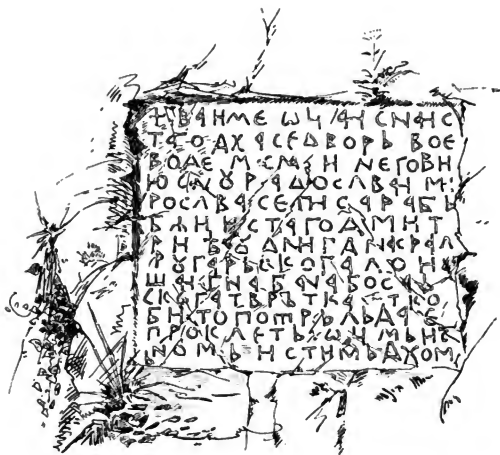 + ВАИМЕ ѠЦ АИ СНАИС
ТАГО ДХАСЕДВОРЬ ВОЕ
ВОДЕ МСМАИ НЕГОВИ
Ю СНУ РАДОСЛВАИ М:
РОСЛВАСЕПИСАРАБЬ
БЖИИСТАГОДМИТ
РИ ДНИГАНАКРАЛ
УГАРЬСКОГАЛОИ
ШАИГНАБАНАБОСАЬ
СКОГАТВРЬТКАТКО
БИТОПОТРЬЛЬДАЕ
ПРОКЛЕТЬѠЦМЬИС
НОМЬИСТИМЬДХОМ